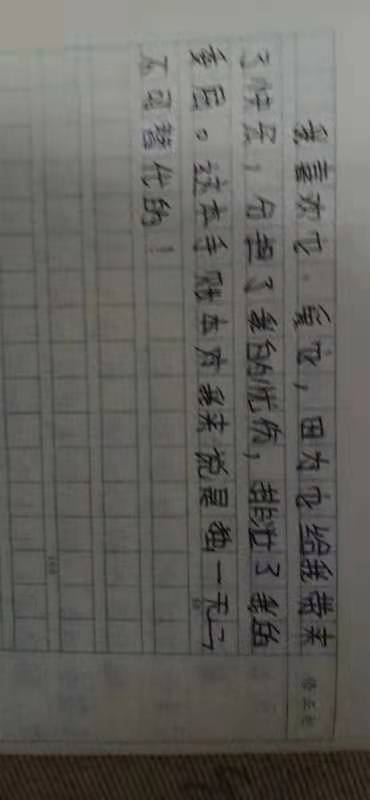 我喜欢它、爱它，因为它给我带来
了快乐，分担了我的忧伤，了我的
委屈。这本手账本对我来说是独一无二
不可替代的！